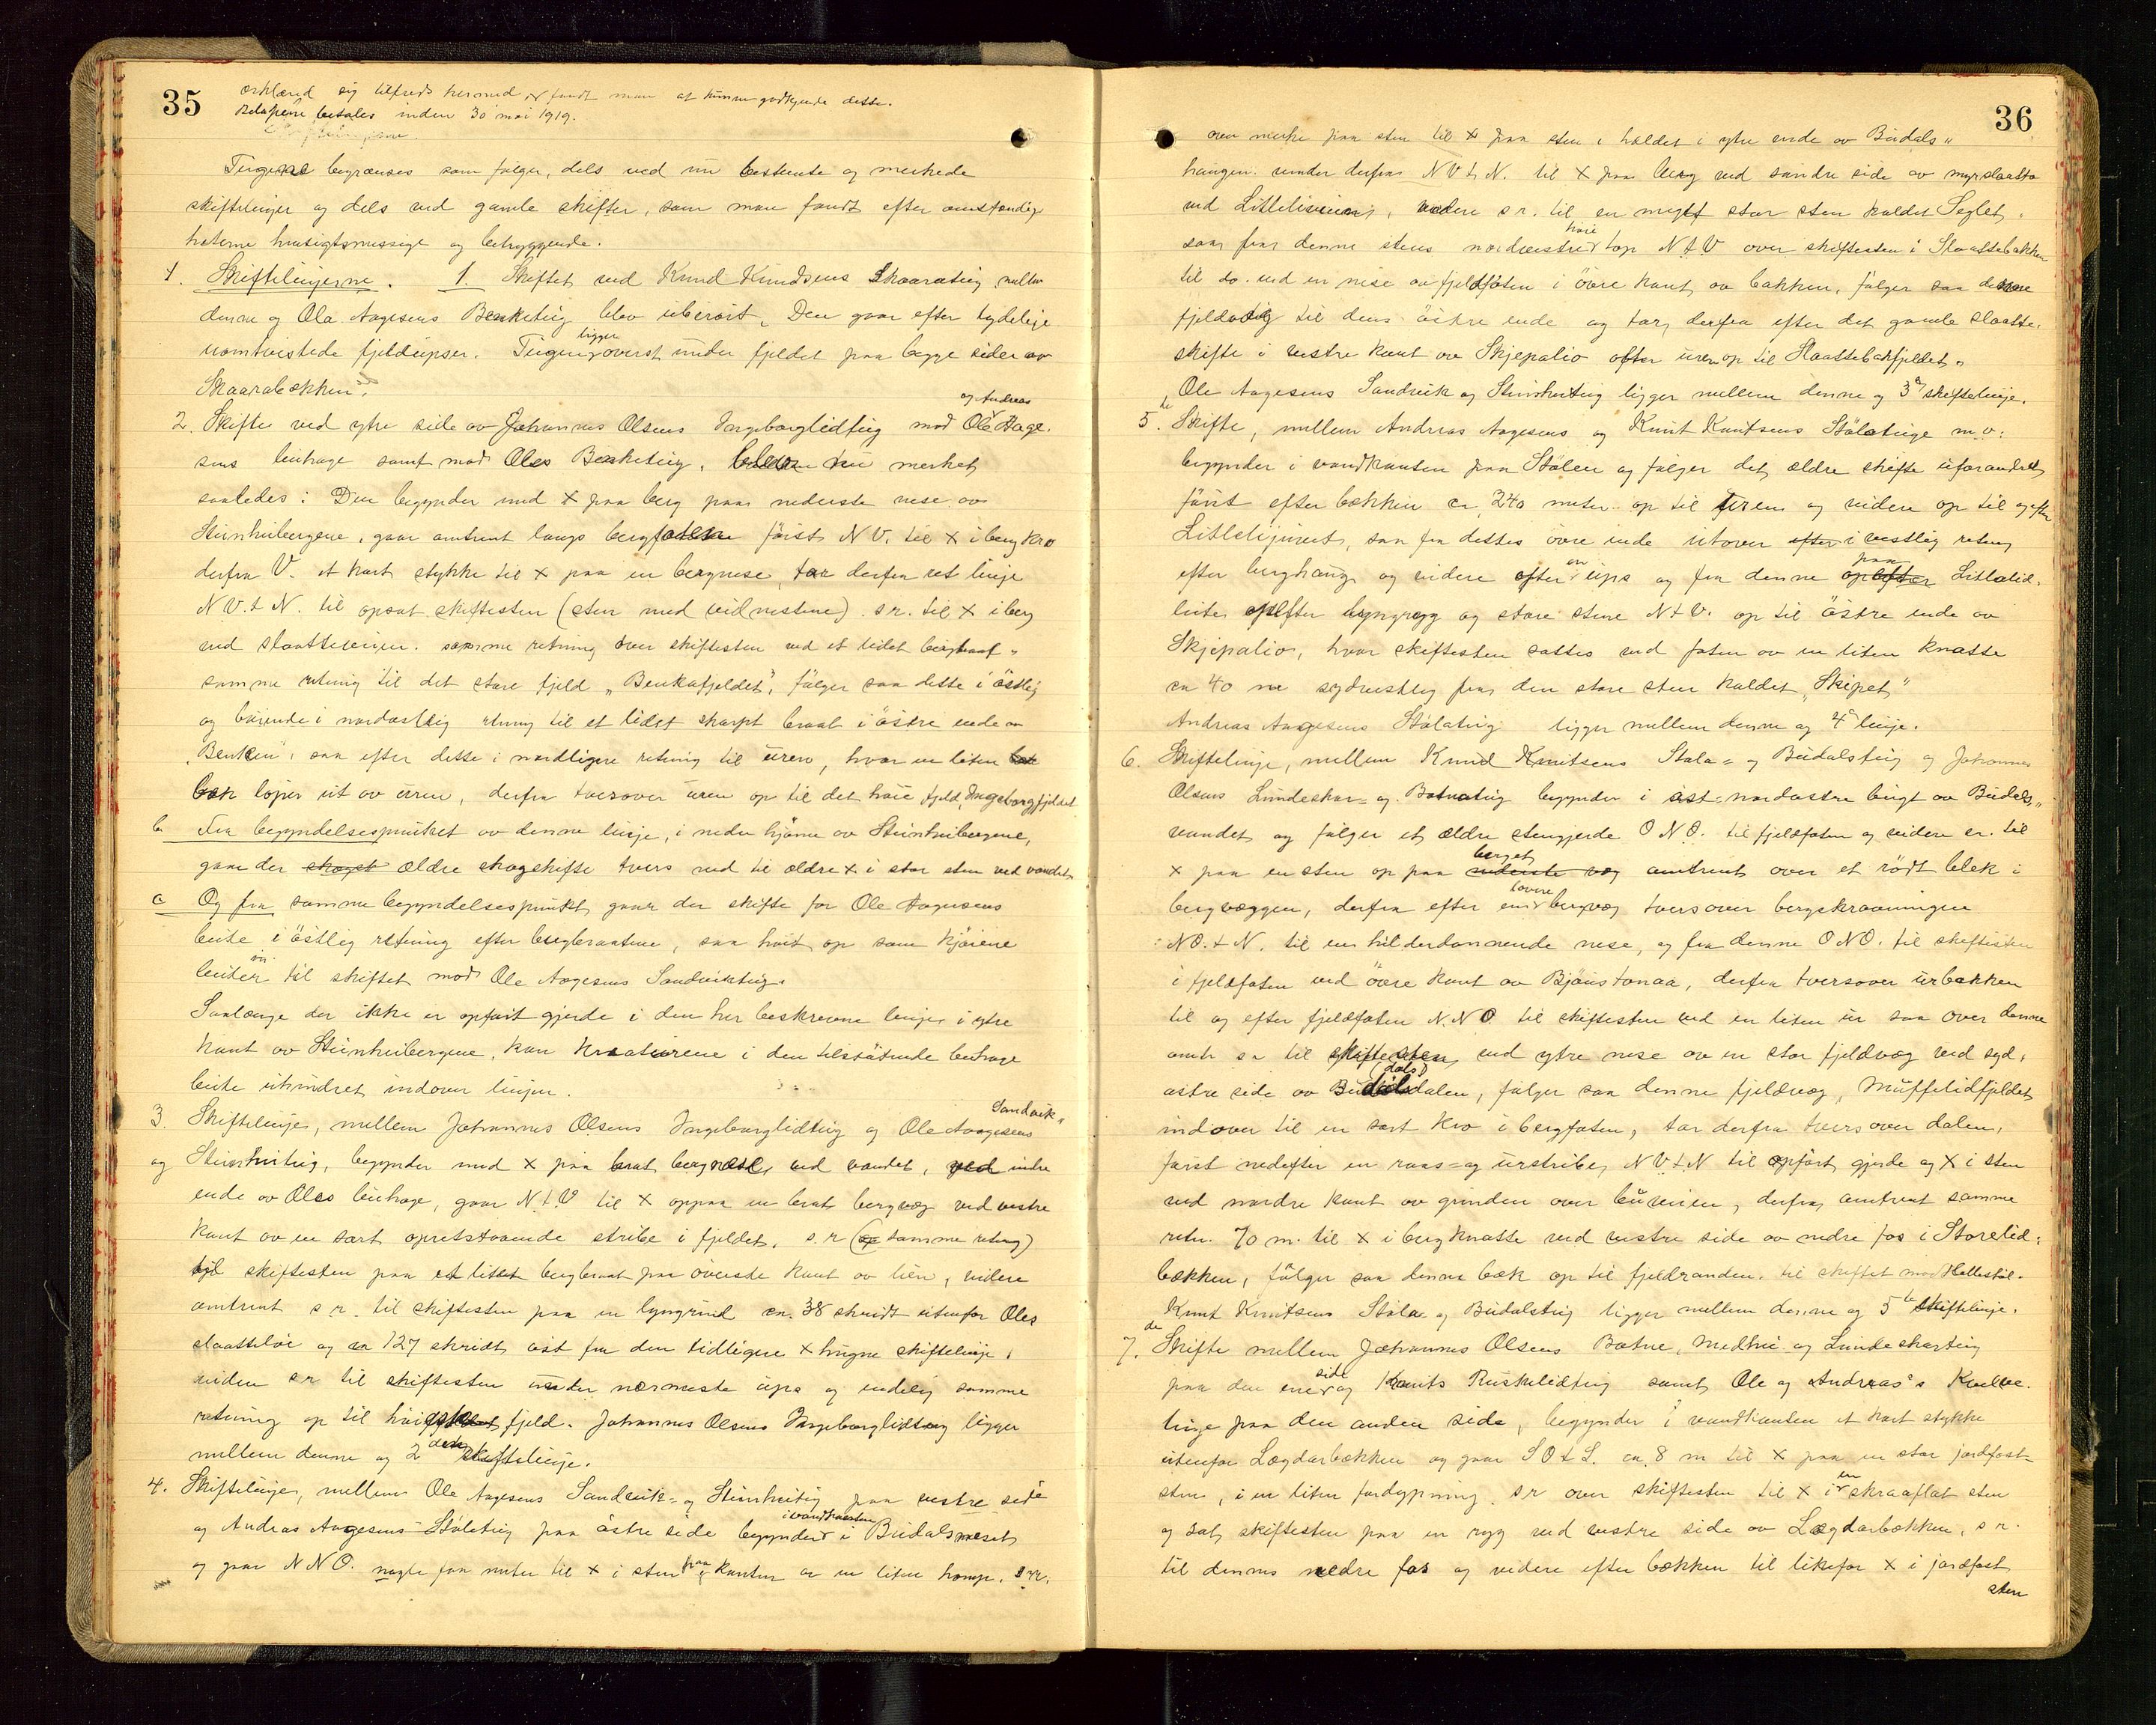 35
erklæred sig tilfreds hermed og fandt man at kunne godkjende dette.
Beløpene betales inden 30 mai 1919.
Teigene begrænses som følger, dels ved nu bestemte og merkede
skiftelinjer og dels ved gamle skifter, som man fandt efter omstændig-
heterne hensigtsmessige og betryggende.
1. Skiftelinjerne. 1. Skiftet ved Knud Knudsens Skaarateig mellem
denne og Ola Aagesens Benketeig blev uberört. Den gaar efter tydelige
uomtvistede fjeldupser. Teigen ligger överst under fjeldet paa begge sider av
Skaarabækken.
2. Skifte ved ytre side av Johannes Olsens Ingeborglidteig mod Ole og Andreas Aage-
sens beitehage samt mod Oles Benketeig, blev nu merket
saaledes: Den begynder med x paa berg paa nederste nese av
Steinheibergene, gaar omtrent langs bergfoten först N V. til x i berg kro
derfra V. et kort stykke til x paa en bergnese, tar derfra ret linje
N V. t. N. til opsat skiftesten (sten med vidnestene). s r. til x i berg
ved slaatteveien. samme retning over skiftesten ved et litet bergbraat „
samme retning til det store fjeld „Benkafjeldet", fölger saa dette i östlig
og böiende i nordostlig retning til et litet skarpt braat i östre ende av
„Benken", saa efter dette i nordligere retning til uren, hvor en liten
bæk löper ut av uren, derfra tversover uren op til det höie fjeld, Ingeborgfjeldet
b. Fra begyndelsespunktet av denne linje, i nedre hjörne av Steinheibergene,
gaar der skoget ældre skogskifte tvers ned til ældre x i stor sten ved vandet.
c Og fra samme begyndelsespunkt gaar der skifte for Ole Aagesens
beite i östlig retning efter bergbraatene, saa höit op som kjörene
beiter til skiftet mod Ole Aagesens Sandvikteig.
Saalænge der ikke er opfört gjerde i den her beskrevne linje i ytre
kant av Steinheibergene, kan kreaturene i den tilstötende beitehage
beite uhindret indover linjen.
3. Skiftelinje, mellem Johannes Olsens Ingeborglidteig og Ole Aagesens Sandvik-
og Steinheiteig, begynder med x paa brat bergnese, ved vandet, ved indre
ende av Oles beitehage, gaar N. t. V til x oppaa en brat bergvæg ved vestre
kant av en sort opretstaaende stribe i fjeldet, s. r (samme retning)
til skiftesten paa et litet bergbraat paa överste kant av lien, videre
omtrent s r. til skiftesten paa en lyngrind ca. 38 skridt utenfor Oles
slaatteløe og ca 127 skridt öst fra den tidligere x hugne skiftelinje,
videre s r til skiftesten under nærmeste ups og endelig samme
retning op til höieste fjeld. Johannes Olsens Ingeborglidteig ligger
mellem denne og 2 den skiftelinje.
4. Skiftelinje, mellem Ole Aagesens Sandvik- og Steinheiteig paa vestre side
og Andreas Aagesens Stöleteig paa östre side begynder i vandkanten i Budalsneset
og gaar N N O. nogle faa meter til x i sten paa kanten av en liten homp. s r.
36
over merke paa sten til x paa sten i haldet i ytre ende av Budals„
haugen. vender derfra N V t N. til x paa berg ved söndre side av myrslaatta
ved Littleliveien, videre s r. til en meget stor sten kaldet Seglet,
saa fra denne stens nordvestre höie top N t V over skiftesten i Slaattebakken
til do. ved en nese av fjeldfoten i övre kant av bakken, fölger saa denne
fjeldvæg til dens östre ende og tar derfra efter det gamle slaatte-
skifte i vestre kant av Skjepalio efter uren op til Slaattebakfjeldet„
Ole Aagesens Sandvik og Steinheiteig ligger mellem denne og 3die skiftelinje.
5te. Skifte, mellem Andreas Aagesens og Knut Knutsens Stöleteige m. v:
begynder i vandkanten paa Stölen og fölger det ældre skifte uforandret
först efter bækken ca. 240 meter op til uren og videre op til og efter
Littlelijuvet, saa fra dettes övre ende utover efter i vestlig retning
efter berghaug og videre efter en ups og fra denne op efter paa Littlelid-
leite, op efter lyngrygg og store stene N t V. op til östre ende av
Skjepalio, hvor skiftesten sattes ved foten av en liten knatte
ca 40 m sydvestlig fra den store sten kaldet „Skipet"
Andreas Aagesens Stöleteig ligger mellem denne og 4de linje.
6. Skiftelinje, mellem Knud Knutsens Støla- og Budalsteig og Johannes
Olsens Lundeskar- og Botnateig begynder i öst-nordöstre bugt av Budals„
vandet og fölger et ældre stengjerde O N O. til fjeldfoten og videre s r. til
x paa en sten op paa berget nederste væg omtrent over et rödt blek i
bergvæggen, derfra efter en lavere bergvæg tversover bergskraaningen
N O. t N. til en hilderdannende nese, og fra denne O N O. til skiftesten
i fjeldfoten ved övre kant av Bjönstonaa, derfra tversover urbækken
til og efter fjeldfoten N. N O. til skiftesten ved en liten ur saa over denne
omtr s r til skiftesten ved ytre nese av en stor fjeldvæg ved syd-
östre side av Budalsdalen, fölger saa denne fjeldvæg, Muffelidfjeldet
indover til en sort kro i bergfoten, tar derfra tversover dalen,
först nedefter en raas- og urstribe, N V t N til opfört gjerde og x i sten
ved nordre kant av grinden over buveien, derfra omtrent samme
retn. 70 m. til x i bergknatte ved vestre side av nedre fos i Storelid-
bækken, fölger saa denne bæk op til fjeldranden til skiftet mod Hallestöl-
Knut Knutsens Støla- og Budalsteig ligger mellem denne og 5te skiftelinje.
7de. Skifte mellem Johannes Olsens Botne, Medhei og Lundeskarteig
paa den ene side og Knuts Ruskelidteig samt Ole og Andreas's Kvelve-
teige paa den anden side, begynder i vandkanten et kort stykke
utenfor Lægdarbækken og gaar S O t S. ca. 8 m til x paa en stor jordfast-
sten, i en liten fordypning. s r over skiftesten til x i en skraaflat sten
og sat skiftesten paa en ryg ved vestre side av Lægdarbækken, s r.
til dennes nedre fos og videre efter bækken til likefor x i jordfast
sten